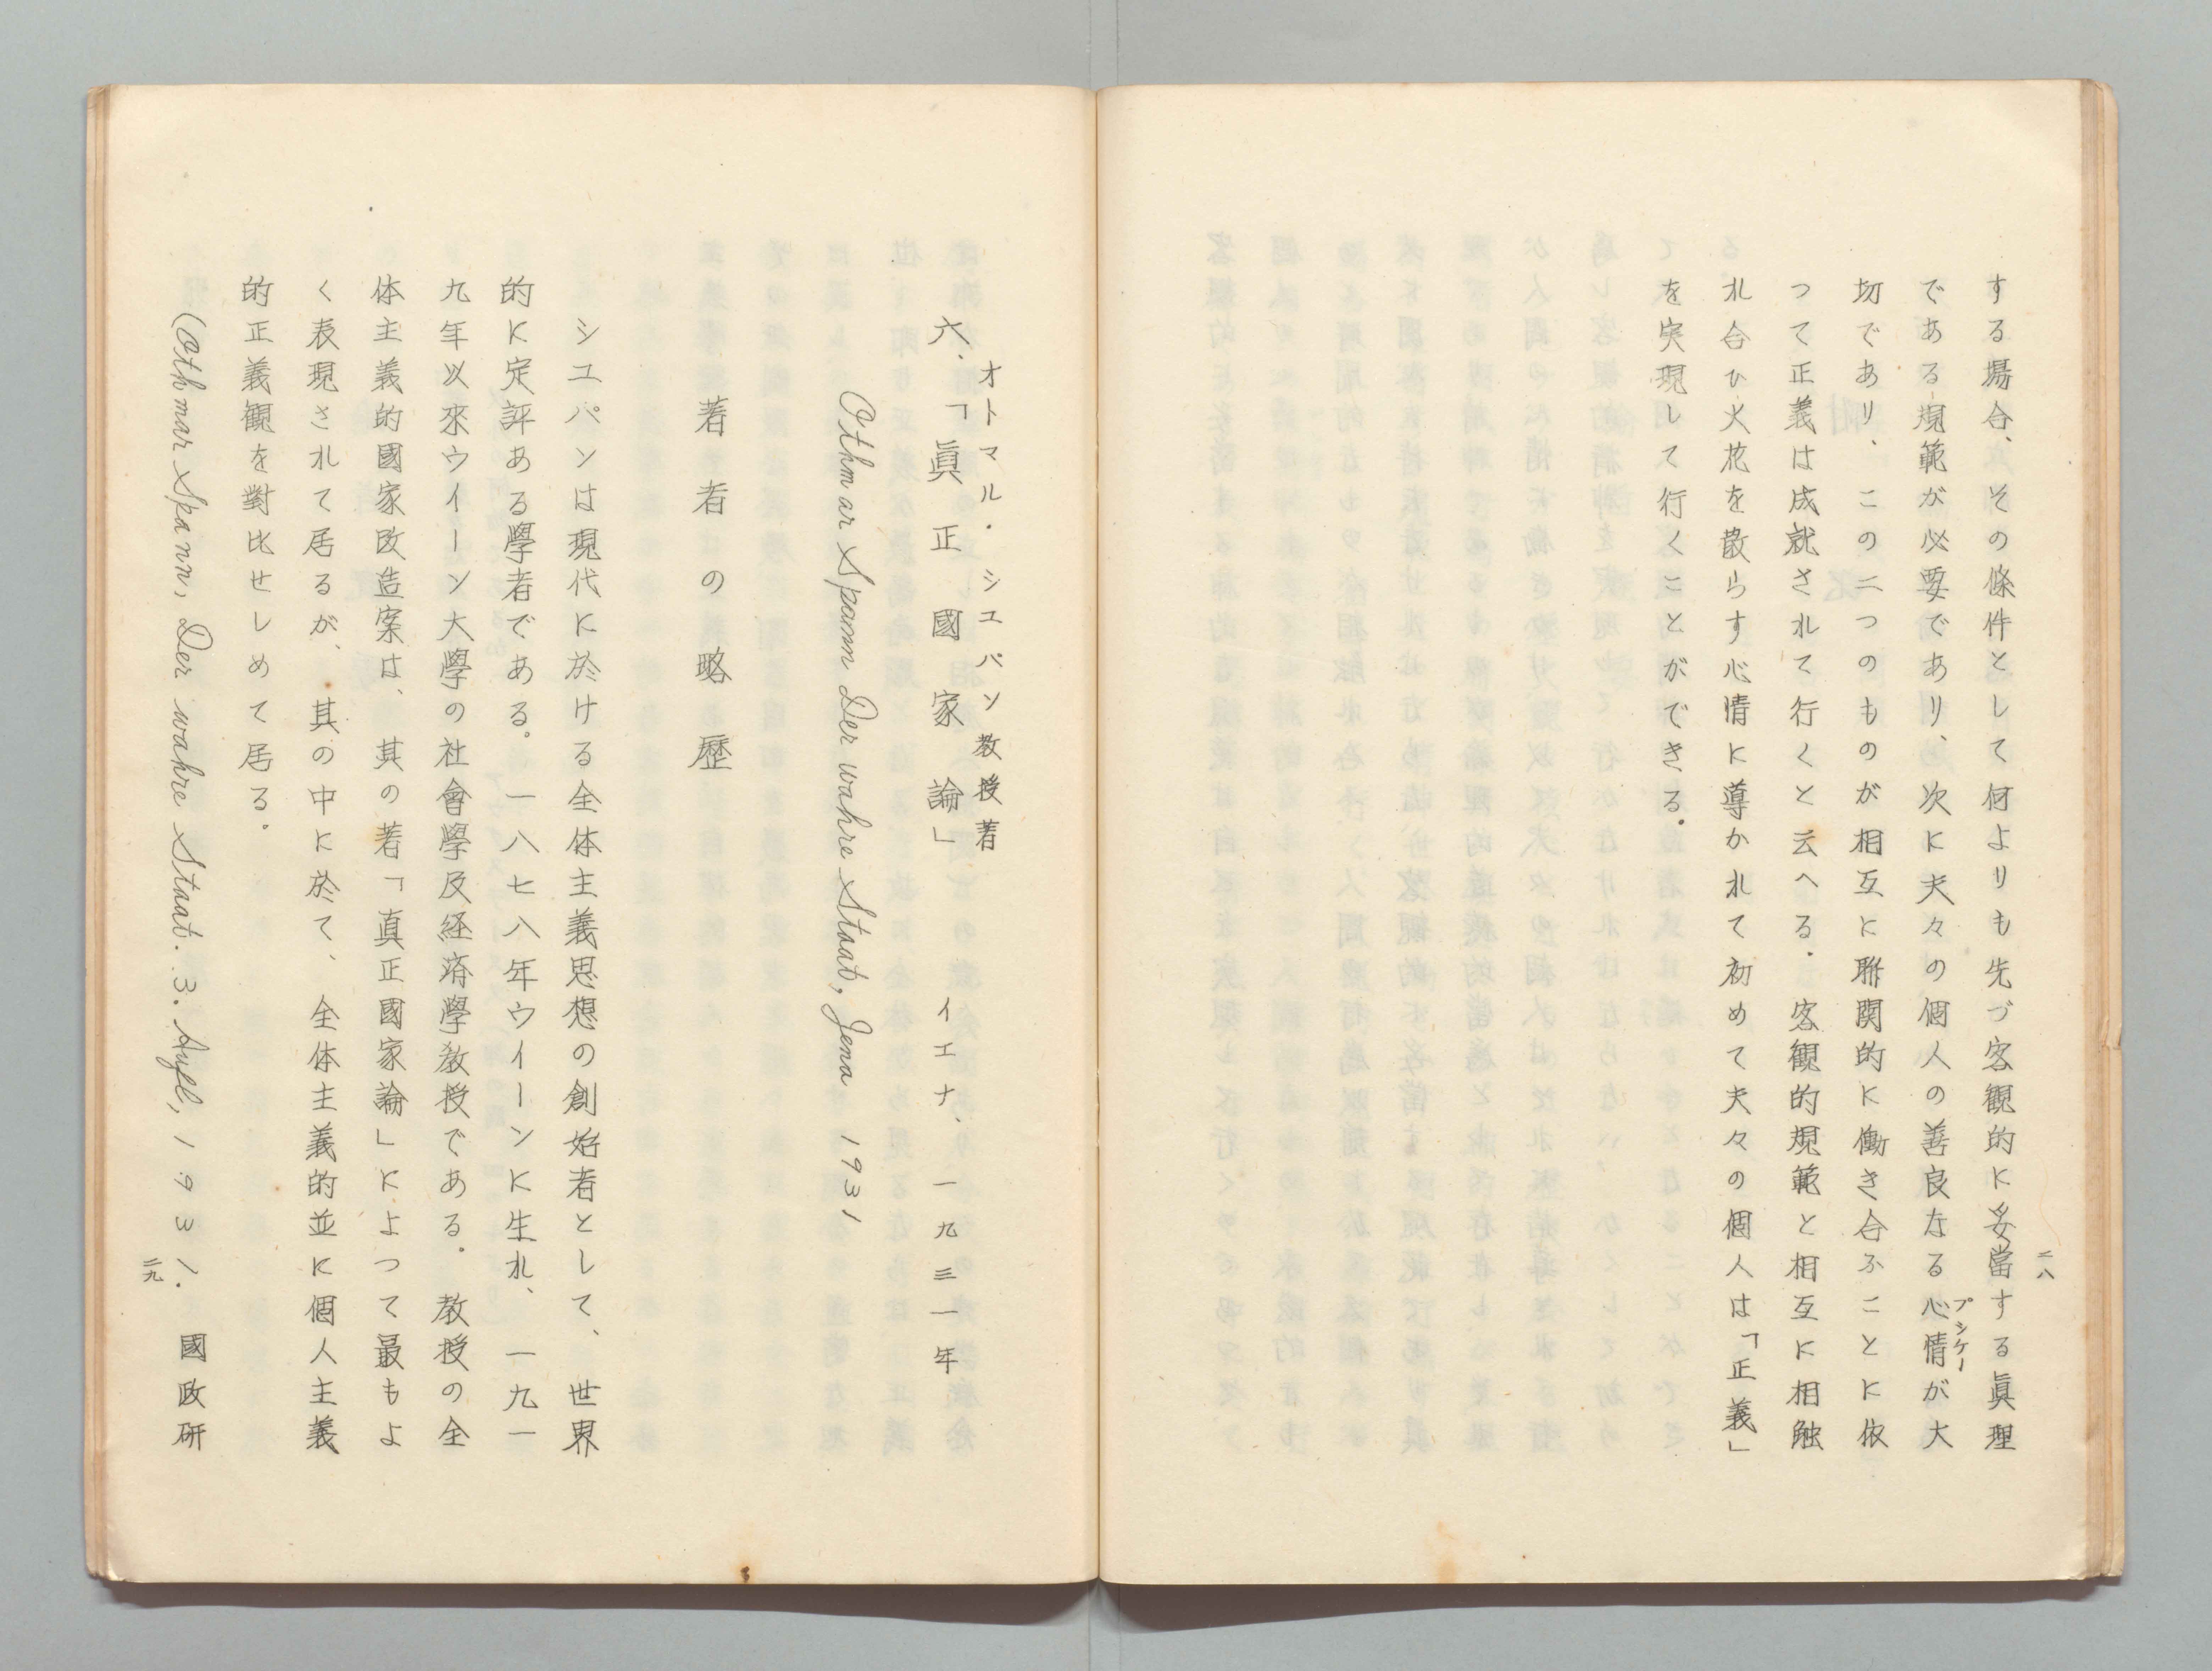 する場合、その條件として何よりも先づ客観的に妥當する眞理
である規範が必要であり、次に夫々の個人の善良なる心情が大
プシケー
切であり、この二つのものが相互に聯関的に働き合ふことに依
つて正義は成就されて行くと云へる。客観的規範と相互に相触
れ合ひ火花を散らす心情に導かれて初めて夫々の個人は「正義」
を実現して行くことができる。
二八
オトマル・シユパン教授著
六、「眞正國家論」 イエナ、一九三一年
Othmar Spann Der wahre Staat, Jena 1931
著者の略歴
シユパンは現代に於ける全体主義思想の創始者として、世界
的に定評ある學者である。一八七八年ウイーンに生れ、一九一
九年以來ウイーン大學の社會學及経済學教授である。教授の全
体主義的國家改造案は、其の著「真正國家論」によつて最もよ
く表現されて居るが、其の中に於て、全体主義的並に個人主義
的正義観を對比せしめて居る。
(Othmar Spann, Der wahre Staat. 3. Aufl, 1931.
國政研
二九